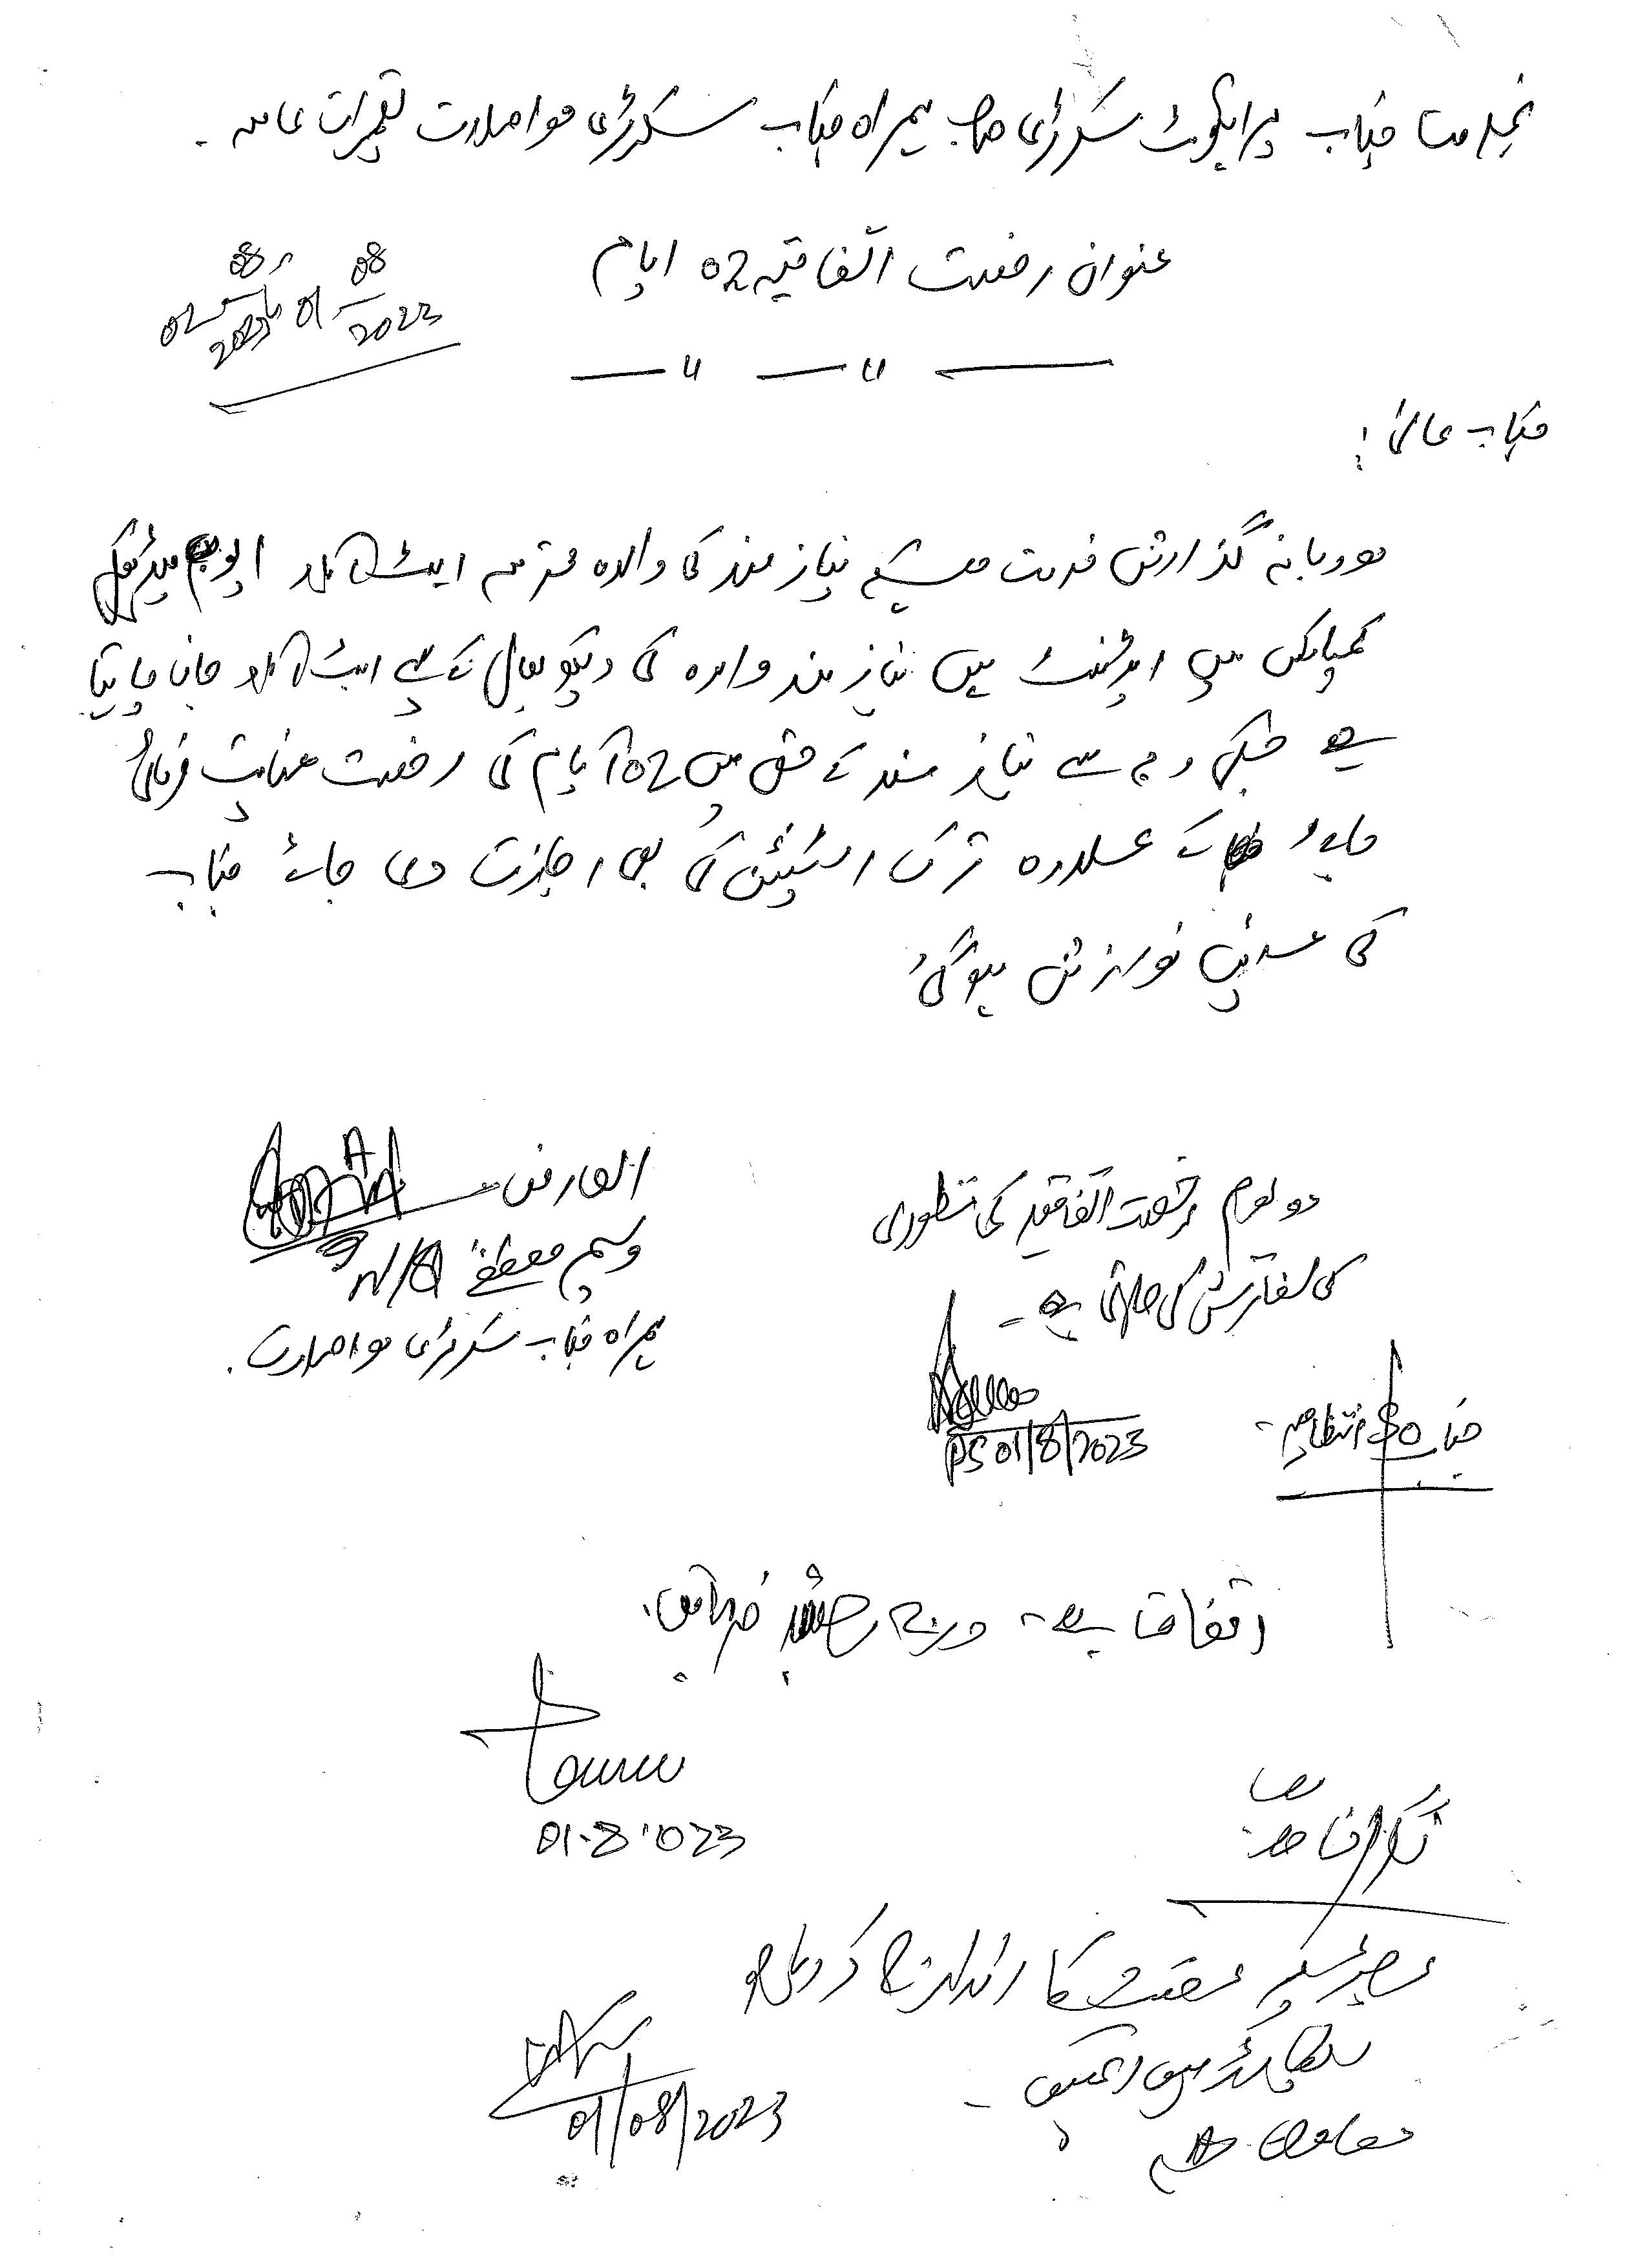 بخدمت جناب پرائیویٹ سیکرٹری صاحب ہمراہ جناب سیکرٹری مواصلات تعمیرات عامہ۔
عنوان رخصت اتفاقیہ 02 ایام
01 08/2023 تا 02 08/2023
جناب عالی!
مودبانہ گذارش خدمت ہیکہ نیاز مند کی والدہ محترمہ ایبٹ آباد ایوب میڈیکل
کمپلیکس میں ایڈمنٹ ہیں نیاز مند والدہ کی دیکھ بھال کے لیے ایبٹ آباد جانا چاہتا
ہے جسکی وجہ سے نیاز مند کے حق میں 02 ایام کی رخصت عنایت فرمائی
جائے کے علاوہ ترک اسٹیشن کی بھی اجازت دی جائے جناب
کی عین نوازش ہوگی
العارض
وسیم مصطفیٰ N/Q
ہمراہ جناب سیکرٹری مواصلات.
دو یوم رخصت اتفاقیہ کی منظوری
کی سفارش کی جاتی ہے۔
PS 01/8/2023
جناب SO انتظامیہ۔
اتفاق ہے۔ درج رجسٹر فرمائیں.
01-8-023
نگران صاحب
کا اندراج کر دیا
01/08/2023